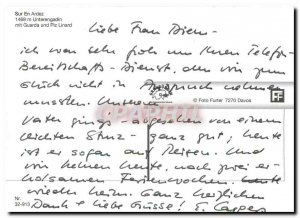 Sur En Ardez
1469 m Unterengadin
mit Guarda und Piz Linard
Liebe Frau
ich war sehr froh um Ihren Telefon-
Bereitschafts-Dienst, den wir zum
Glück nicht in Anspruch nehmen
mussten. Unserem
© Foto Furter 7270 Davos
Vater ging es von einem
leichten Sturz ganz gut; heute
ist er sogar auf Reisen. Und
wir kehren heute, nach zwei er-
holsamen Ferienwochen,
wieder heim. Ganz herzlichen
Nr.
32-913
Dank & liebe Grüsse! E. Casper